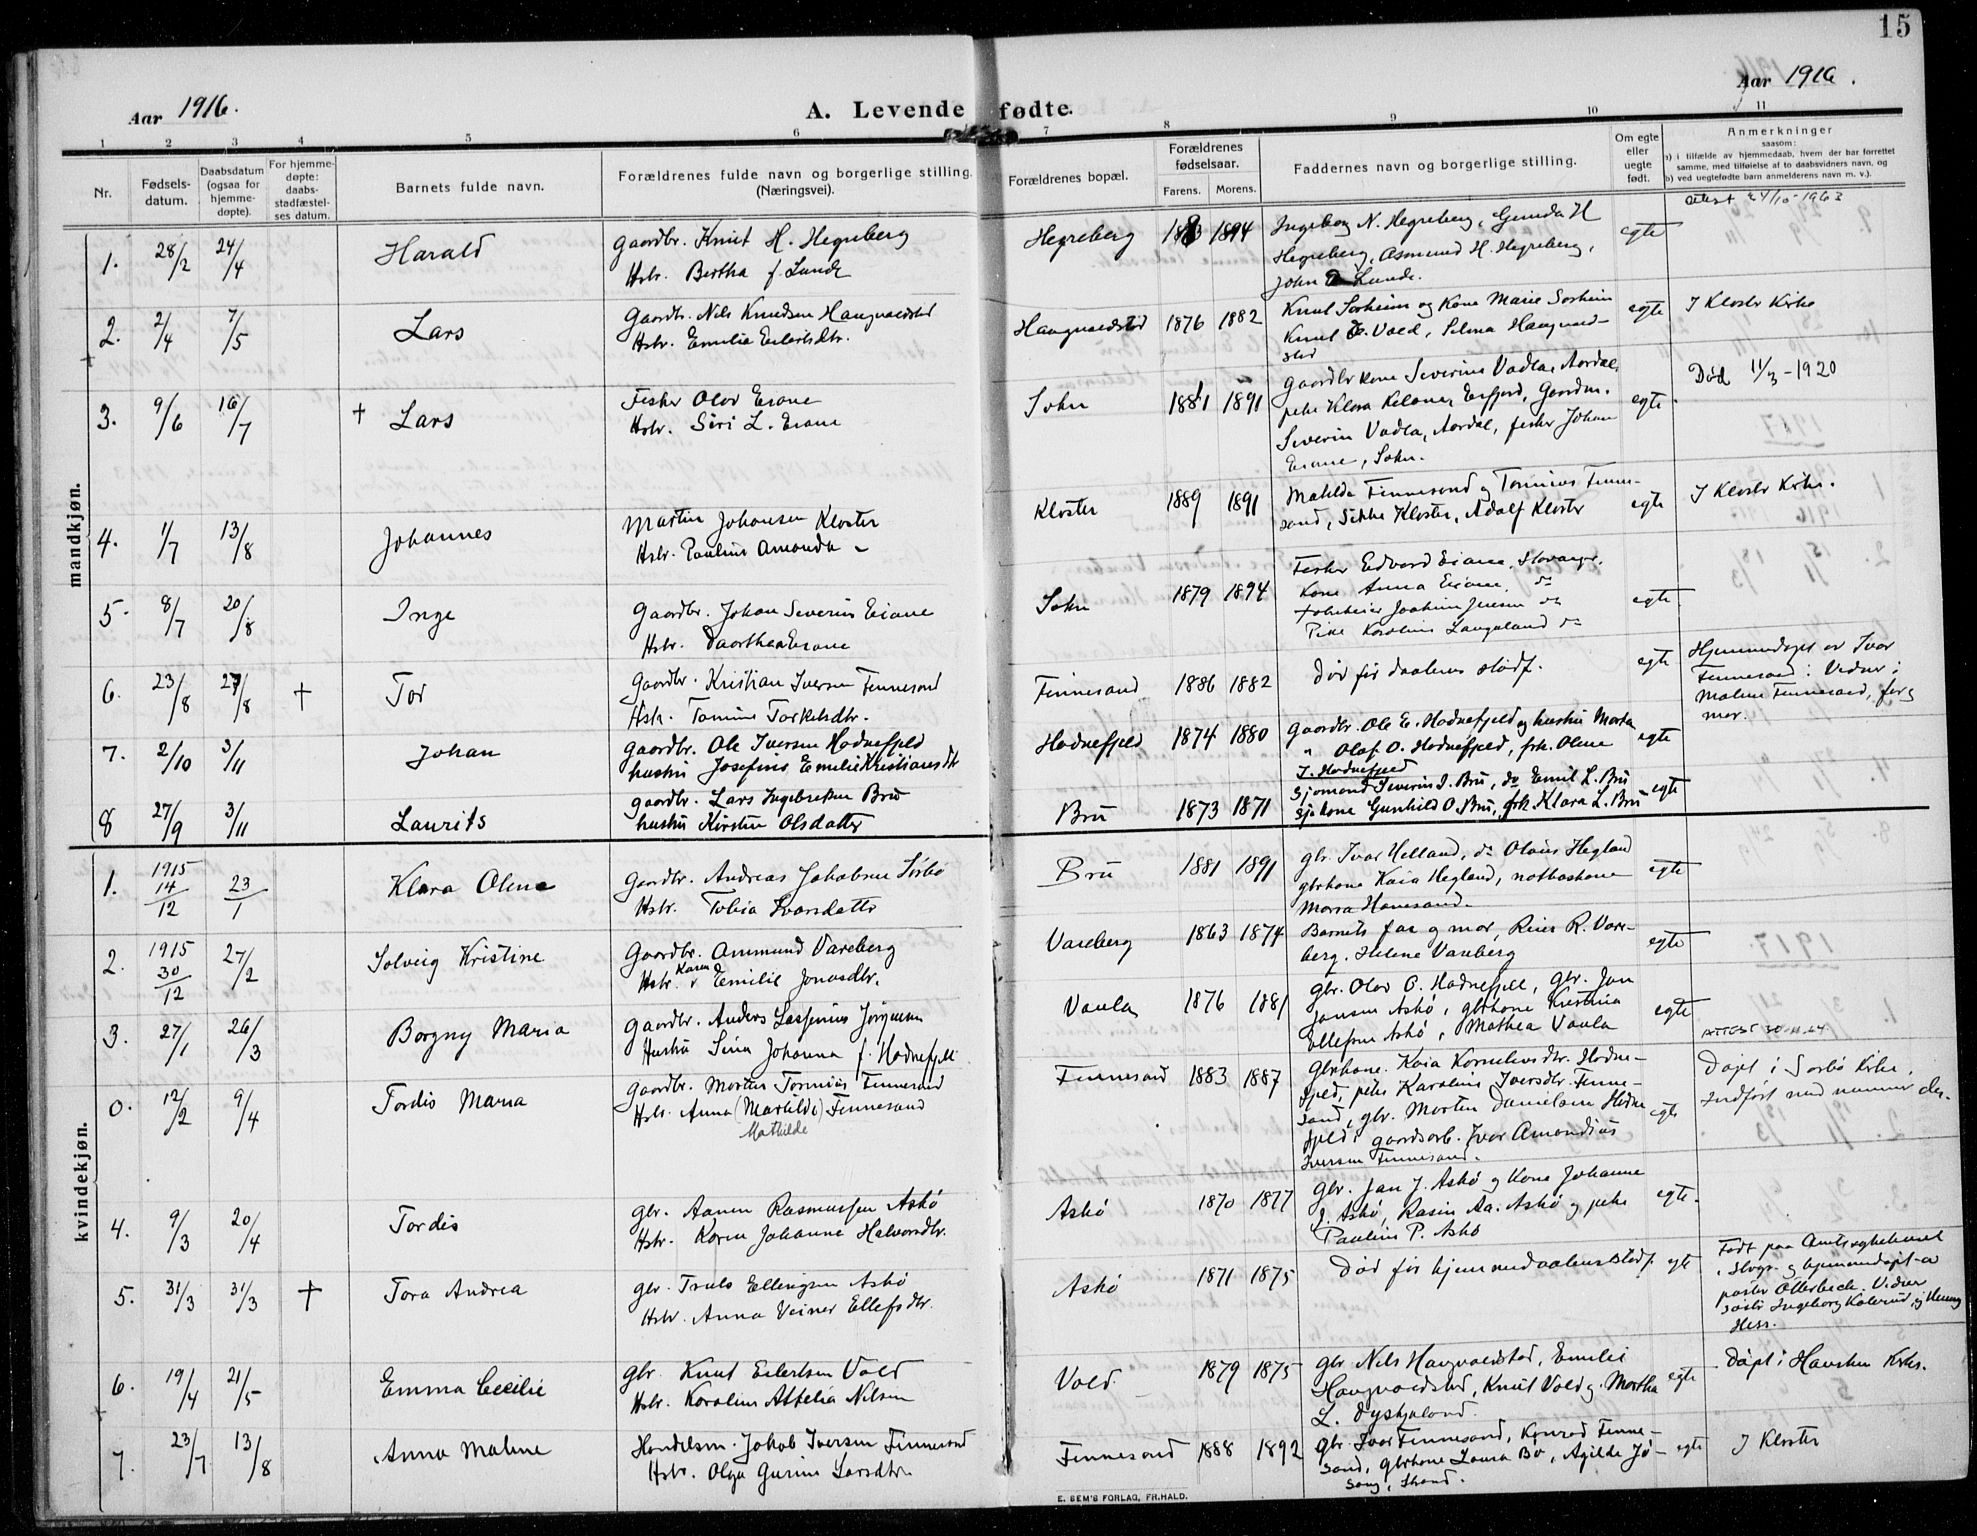 15
Aar 1916.
A. Levende fødte.
Aar 1916.
1 2 3 4 5 6 7 8 9 10 11
Nr.
Fødsels-
datum.
Daabsdatum
(ogsaa for
hjemme-
døpte).
For hjemme-
døpte:
daabs-
stadfæstel-
ses datum.
Barnets fulde navn.
Forældrenes fulde navn og borgerlige stilling.
(Næringsvei).
Forældrenes bopæl.
Forældrenes
fødselsaar.
Farens. Morens.
Faddernes navn og borgerlige stilling.
Om egte
eller
uegte
født.
Anmerkninger
saasom:
a) i tilfælde av hjemmedaab, hvem der har forrettet
samme, med tilføielse af to daabsvidners navn, og
b) ved uegtefødte barn anmelderens navn m. v.).
mandkjøn.
1. 28/2 24/4 Harald
Gaardbr. Knut H. Hegreberg
Hstr. Bertha f. Lunde
Hegreberg 1883 1894
Ingeborg N. Hegreberg, Gunda H
Hegreberg, Asmund H. Hegreberg,
John Lunde.
egte
Attest 24/10-1963
2. 2/4 7/5 Lars
Gaardbr. Nils Knudsen Haugvaldstad
Hstr. Emilie Eilertsdtr.
Haugvaldstad 1876 1882
Knut Sørheim og Kone Marie Sørheim
Knut E. Vold, Selma Haugvald-
stad
egte
I Kloster Kirke
3. 9/6 16/7 † Lars
Fisker Olav Eiane
Hstr. Siri L. Eiane
Sokn 1881 1891
Gaardbr kone Severine Vadla, Aardal,
pike Klara Erfjord, Gaardm.
Severin Vadla, Aardal, fisker Johan
Eiane, Sokn.
egte
Død 11/3-1920
4. 1/7 13/8 Johannes
Martin Johansen Kloster
Hstr. Pauline Amanda "
Kloster 1889 1891
Matilda Finnesand og Tønnies Finne-
sand, Sikke Kloster, Adolf Kloster
egte
I Kloster Kirke.
5. 8/7 20/8 Inge
Gaardbr. Johan Severin Eiane
Hstr. Daarthea Eiane
Sokn 1879 1894
Fisker Edvard Eiane, Stavanger,
Kone Anna Eiane, do
Joakim Jensen do
Pike Karoline Langeland do
egte
6. 23/8 27/8 † Tor
Gaardbr. Kristian Iversen Finnesand
Hstr. Tomine Torkelsdtr.
Finnesand 1886 1882
Død før daabens stadf.
egte
Hjemmedøpt av Ivar
Finnesand. Vidner:
Malene Finnesand, far og
mor.
7. 2/10 3/11 Johan
Gaardbr. Ole Iversen Hodnefjeld
hustru Josefine Emelie Kristiansdtr
Hodnefjeld 1874 1880
Gaardbr. Ole E. Hodnefjeld og hustru Marta
" Olaf O. Hodnefjeld, frk. Olene
I. Hodnefjeld
egte
8 27/9 3/11 Laurits
gaardbr. Lars Ingebretsen Bru
hustru Kirsten Olsdatter
Bru 1873 1871
Sjømand Severin I. Bru, do Emil L. Bru
Sjøkone Gunhild O. Bru, frk Klara L. Bru
egte
kvindekjøn.
1. 1915 14/12 23/1 Klara Olene
Gaardbr. Andreas Jakobsen Sørbø
Hstr. Tobia Ivarsdatter
Bru 1881 1891
gbr. Ivar Helland, do Olaus Hegland
gbrkone Kaia Hegland, notbaskone
Marra Hanesand.
egte
2. 1915 30/12 27/2 Solveig Kristine
Gaardbr. Ammund Vareberg
Hstr. Karen Emilie Jonasdtr.
Vareberg 1863 1874
Barnets far og mor, Reier R. Vare-
berg, Helene Vareberg
egte
3. 27/1 26/3 Borgny Maria
Gaardbr. Anders Jørgensen
Hustru Sina Johanna f. Hodnefjell
Vaula 1876 1881
Gbr. Olav O. Hodnefjell, gbr. Jan
Jansen Askø, gbrkone Kristina
Ellefsen Askø, Mathea Vaula
egte
ATTEST 30.11.64
0. 12/2 9/4 Tordis Maria
Gaardbr. Morten Tønnies Finnesand
Hstr. Anna (Martilde) Finnesand
Mathilde
Finnesand 1883 1887
Gbrkone. Kaia Korneliusdtr. Hodne-
fjeld, pike Karoline Iversdtr. Finne-
sand, gbr. Morten Danielsen Hodne
fjeld, gaardsarb. Ivar Amandius
Iversen Finnesand.
egte
Døpt i Sørbø Kirke,
Indført med nummer der.
4. 9/3 20/4 Tordis
Gbr. Aanen Rasmussen Askø
Hstr. Karen Johanne Halvorsdtr.
Askø 1870 1877
Gbr. Jan J. Askø og Kone Johanne
J. Askø, Rasin Aa. Askø og pike
Pauline P. Askø
egte.
5. 31/3 31/3 † Tora Andrea
gbr. Truls Ellingsen Askø
Hstr. Anna Veiner Ellefsdtr.
Askø 1871 1875
Død før hjemmedaabens stadf.
egte
Født paa Amtssykehuset
i Stvgr. og hjemmedøpt av
pastor Otterbech. Vidner
søster Ingeborg og Henny
Hess.
6. 19/4 21/5 Emma Cecilie
Gbr. Knut Eilertsen Vold
Hstr. Karoline Attelia Nilsen
Vold 1879 1875
Gbr Nils Haugvaldstad, Emelie
Haugvaldstad, Knut Vold og Martha
L. Dyskjeland.
egte
Døpt i Hausken Kirke.
7. 23/7 13/8 Anna Malene
Handelsm. Jakob Iversen Finnesand
Hstr. Olga Gurine Larsdtr.
Finnesand 1888 1892
Gbr. Ivar Finnesand, Konrad Finne-
sand, gbrkone Laura Bø, Agilde Jø-
sang, Strand.
egte
I Kloster
E. SEM'S FORLAG, FR.HALD.